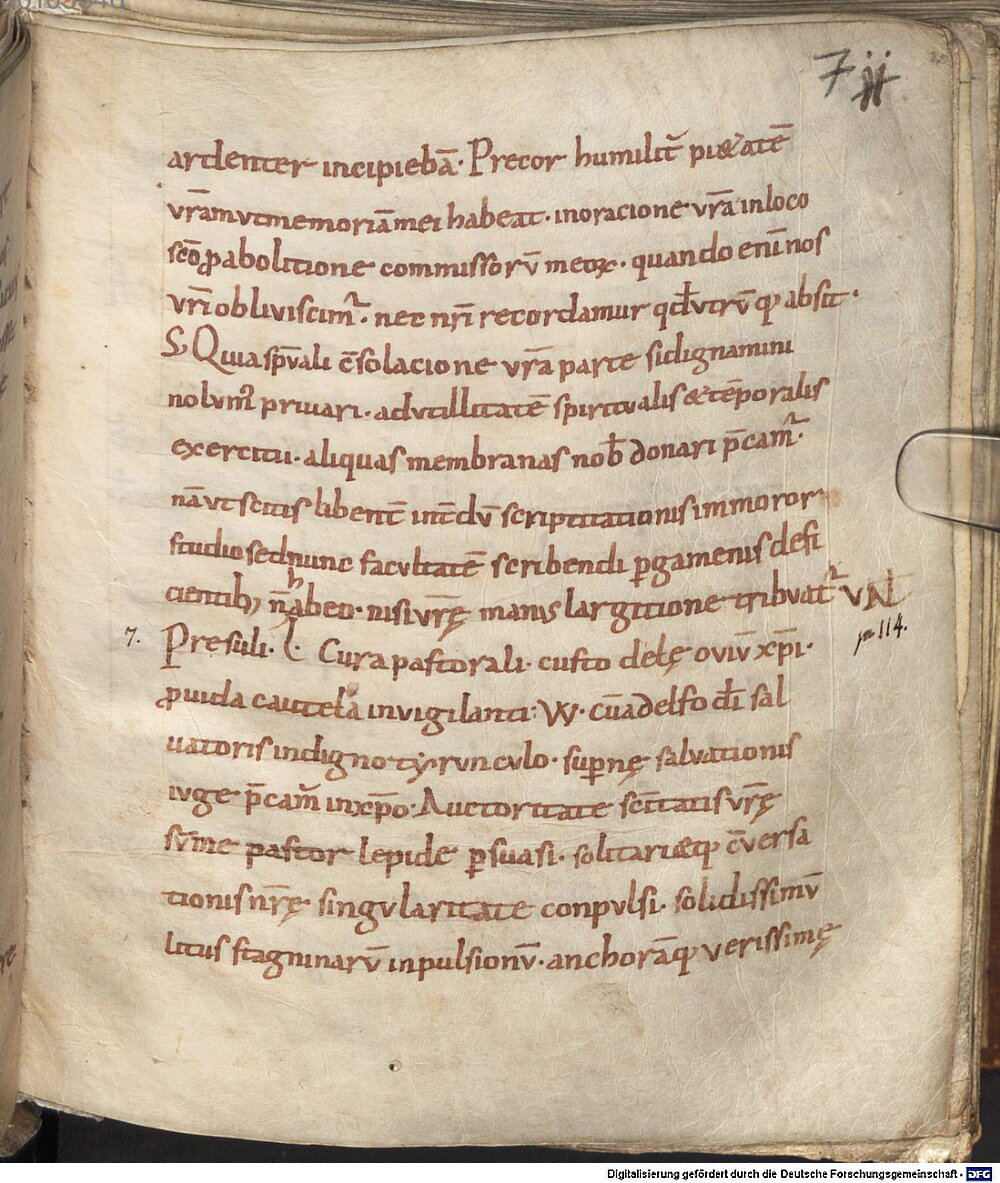 7
ardenter incipiebā· Precor humilit̄ pi&atē
vr̄am vt memoriā mei habeat· in oracione vr̄a in loco
sc̄o ꝓ abolitione commissorū meoꝝ· quando eni̅ nos
vr̄i obliviscim᷑· nec nr̄i recordamur qđ vtrūq; absit·
S, Quia sp̄vali c̄solacione vr̄a parte si dignamini
nolum᷑ privari· ad vtillitatē spiritvalis & tēporalis
exercitu· aliquas membranas nob̄ donari p̄cam᷑·
nā vt scitis libent̄ int̄dū scriptitationis immoror
studio sed nunc facvltatē scribendi ꝑgamenis defi
cientib; n̄ habeo· nisi vr̄ę manus largitione tribvat᷑ vN
7. Presuli· l· Cura pastorali· custo delę oviū xp̄i·
pag 114.
ꝓuida cautela invigilanti: W· cū adelfo dī sal
uatoris indigno ty·runculo· suꝑnę salvationis
ivge p̄cam̄ in xp̄o· Auctoritate sc̄itatis vr̄ę
sūme pastor lepide ꝑsuasi· solitari&q; c̄versa
tionis nr̄ę· singvlaritate conpvlsi· solidissimū
litus stagninarū inpulsionū· anchorāq; verissimę
Digitalisierung gefördert durch die Deutsche Forschungsgemeinschaft - DFG